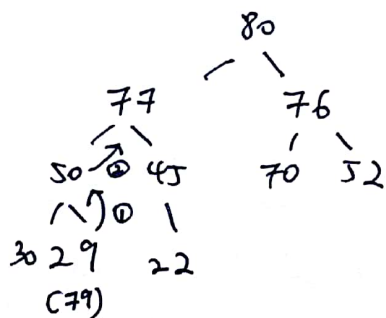 80
77 76
50 ② 45 70 52
①
30 29 22
(79)